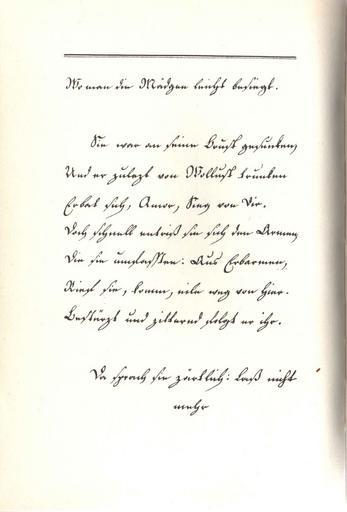 Wo man die Mädgen leicht besiegt.
Sie war an seine Brust gesunken,
Und er zulezt von Wollust trunken
Erbat sich, Amor, Sieg von Dir.
Doch schnell entriß sie sich den Armen,
Die sie umfassten: Aus Erbarmen,
Rief sie, komm, eile weg von hier.
Bestürzt und zitternd folgt er ihr.
Da sprach sie zärtlich: Laß nicht
mehr